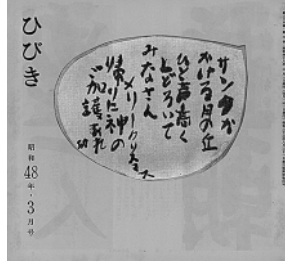 ひびき
昭和48年・3月号
サンタが
かける月の丘
ひと声高く
とどろいて
みなさん
メリークリスマス
帰りに神の
ご加護あれ
幼